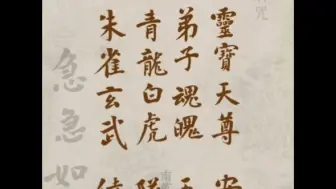 靈寶天尊 安
弟子魂魄
青龍白虎
朱雀玄武
急急如
咒